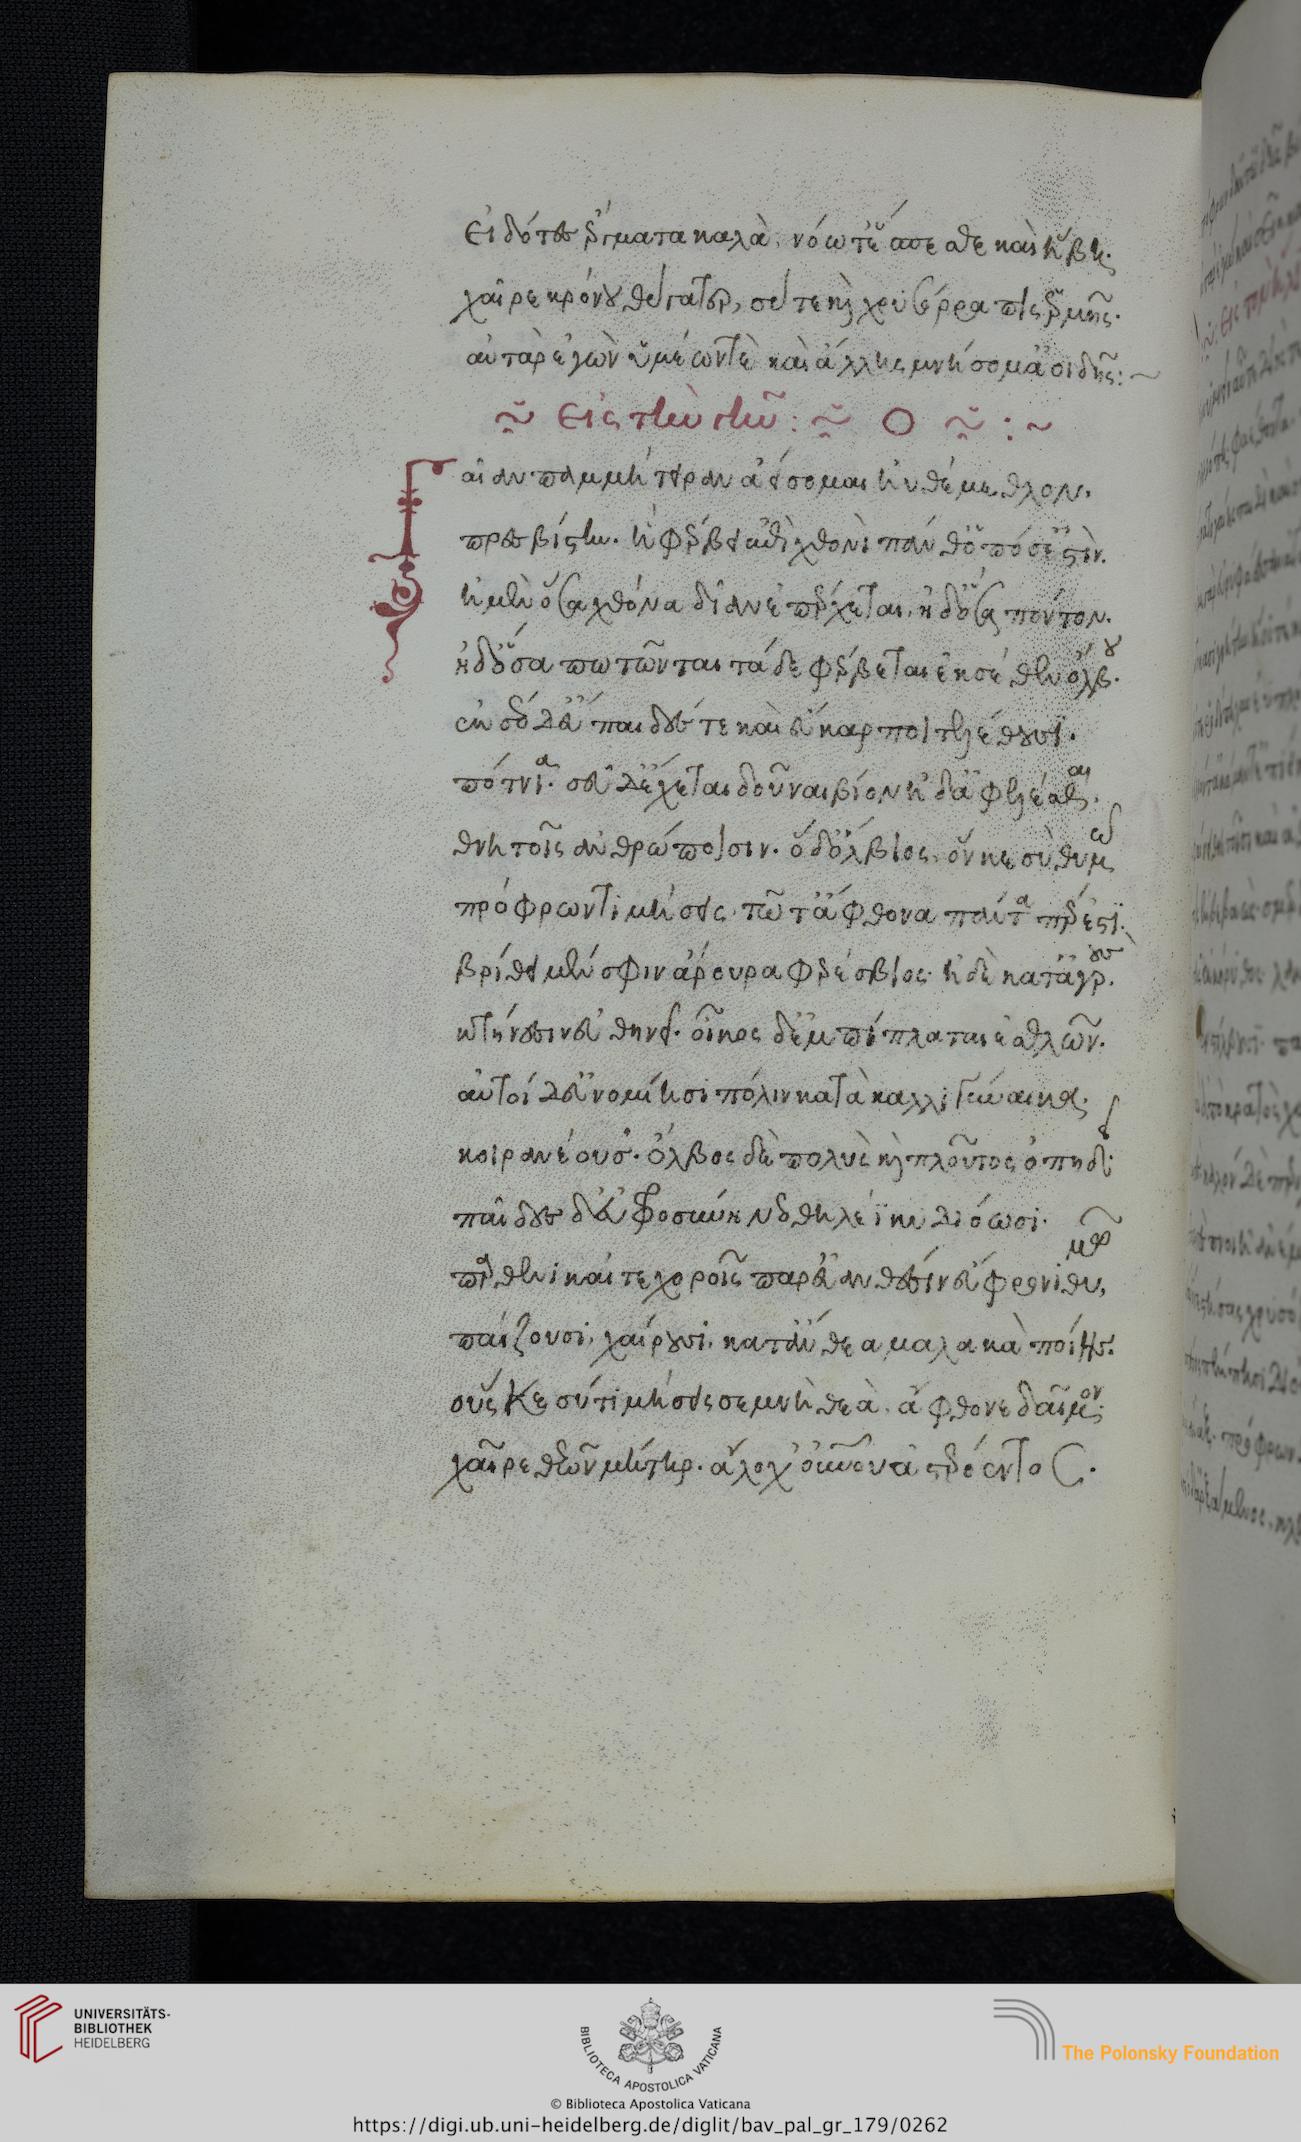 εἰδότες ἔργματα καλὰ, νόω θ᾽ ἕσπεσθε καὶ ἥβη.
χαῖρε κρόνου θύγατερ, σύ τε καὶ χρυσόρραπις ἑρμῆς.
αὐτὰρ ἐγὼν ὑμέων τὲ καὶ ἄλλης μνήσομ᾽ ἀοιδῆς:~
εἰς τὴν γῆν:
Γαῖαν παμμήτειραν ἀείσομαι ἠϋθέμεθλον.
πρεσβίστην. ἣ φέρβει ἐπὶ χθονὶ πάνθ᾽ ὁπόσ᾽ ἐστὶν.
ἠμὲν ὅσα χθόνα δῖαν ἐπέρχεται, ἠδ᾽ ὅσα πόντον.
ἠδ᾽ ὅσα πωτῶνται τάδε φέρβεται ἐκ σέθεν ὄλβου.
ἐκ σέο δ᾽ εὔπαιδές τε καὶ εὔκαρποι τελέθουσι.
πότνια. σεῦ δ᾽ ἔχεται δοῦναι βίον ἠδ᾽ ἀφελέσθαι.
θνητοῖς ἀνθρώποισιν. ὁ δ᾽ ὄλβιος. ὅν κε σὺ θυμῶ
πρόφρων τιμήσεις. τῶ τ᾽ ἄφθονα πάντα πάρεστι.
βρίθει μέν σφιν ἄρουρα φερέσβιος. ἠδὲ κατ᾽ ἀγροὺς
κτήνεσιν εὐθηνεῖ. οἶκος δ᾽ ἐμπίπλαται ἐσθλῶν.
αὐτοί δ᾽ εὐνομίησι πόλιν κατὰ καλλιγύναικα.
κοιρανέουσ᾽. ὄλβος δὲ πολὺς καὶ πλοῦτος ὀπηδεῖ.
παῖδες δ᾽ εὐφροσύνη νεοθηλέϊ κυδιόωσι.
παρθενικαί τε χοροῖς παρ᾽ εὐανθέσιν εὔφρονι θυμῶ
παίζουσι, χαίρουσι, κατ᾽ ἄνθεα μαλακὰ ποίης.
οὕς κε σύ τιμήσεις σεμνὴ θεὰ. ἄφθονε δαῖμον.
χαῖρε θεῶν μήτηρ. ἄλοχ᾽ οὐρανοῦ ἀστερόεντος.
UNIVERSITÄTS-
BIBLIOTHEK
HEIDELBERG
BIBLIOTECA APOSTOLICA VATICANA
The Polonsky Foundation
© Biblioteca Apostolica Vaticana
https://digi.ub.uni-heidelberg.de/diglit/bav_pal_gr_179/0262